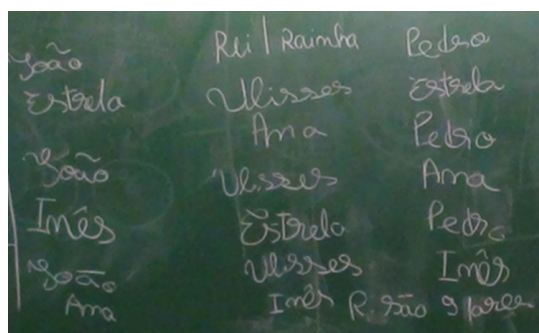 João
Estrela
João
Inês
João
Ana
Rei | Rainha
Ulisses
Ana
Ulisses
Estrela
Ulisses
Inês
Pedro
Estrela
Pedro
Ana
Pedro
Inês
R. são 9 pares